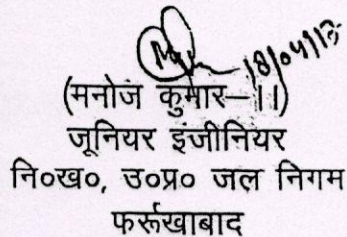 (मनोज कुमार-।।)
जूनियर इंजीनियर
नि०ख०, उ०प्र० जल निगम
फर्रूखाबाद